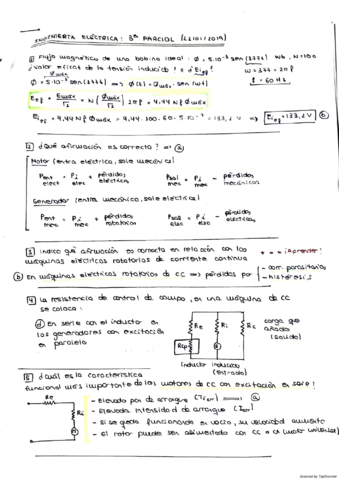 INGENIERÍA ELÉCTRICA: 3er PARCIAL (25/01/2019)
① Flujo magnético de una bobina ideal: Φ = 5·10⁻³ sen(377t) Wb, N=100
¿valor eficaz de la tensión inducida? ¿Eef?
w = 377 = 2πf
f = 60 Hz
Φ = 5·10⁻³ sen(377t) ⇒ Φ(t) = Φmáx · sen(wt)
Eef = Emáx/√2 = N(Φmáx/√2) 2πf = 4.44 N f Φmáx
Eef = 4.44 N f Φmáx = 4.44 · 100 · 60 · 5·10⁻³ = 133,2 V ⇒ Eef = 133,2 V ⓑ
2 ¿Qué afirmación es correcta? ⇒ ⓐ
Motor (entra eléctrica, sale mecánica)
Pent elect = Pi elec + pérdidas eléctricas, Psal mec = Pi mec − pérdidas mecánicas
Generador (entra mecánica, sale eléctrica)
Pent mec = Pi mec + pérdidas rotatorias Psal elec = Pi elec − pérdidas eléctricas
3 Indica qué afirmación es correcta en relación con las
máquinas eléctricas rotatorias de corriente continua
* * * ¡Aprender!
ⓑ En máquinas eléctricas rotatorias de CC ⇒ pérdidas por
- corr. parásitarias
- histéresis
4 La resistencia de control de campo, en una máquina de CC
se coloca:
ⓓ En serie con el inductor en
los generadores con excitación
en paralelo
Re
Ri
Rc
Rcp
carga que
añado
(salida)
inductor
inducido
(entrada)
5 ¿Cuál es la característica
funcional más importante de los motores de CC con excitación en serie?
Re
Ri
- Elevado par de arranque ⓐ
- Elevada intensidad de arranque
- Si se queda funcionando en vacío, su velocidad aumenta
- El rotor puede ser alimentado con CC o CA (motor universal)
Scanned by TapScanner